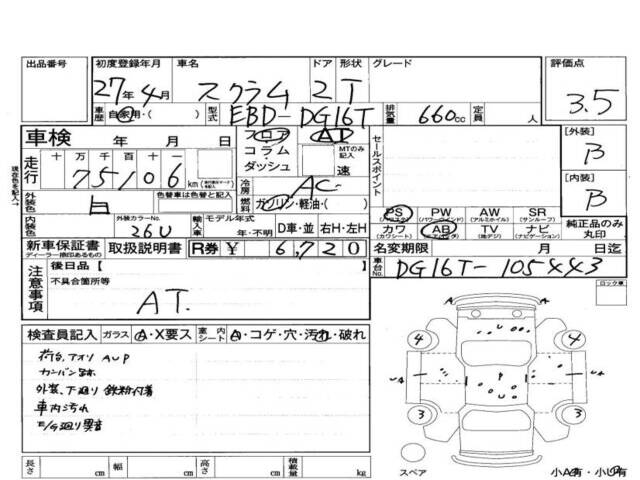 出品番号 初度登録年月 車名 ドア 形状 グレード 評価点
27年4月 スクラム 2 T 3.5
車歴 自家用・( ) 型式 EBD-DG16T 排気量 660cc 定員 人
車検 年 月 日 フロア AT
コラム・ MTのみ記入
ダッシュ 速
セールスポイント
[外装] B
[内装] B
現在色を記入→
走行 十万千百十一
75106 km
冷房 AC
外装色 白 色替車は色替と記入
燃料 ガソリン・軽油・( )
内装色 外装カラーNo. 26U 輸入車 モデル年式 年・不明 D車・並 右H・左H
PS (パワステ) PW (パワーウインド) AW (アルミホイル) SR (サンルーフ)
カワ (カワシート) AB (エアバッグ) TV (地デジ) ナビ (ナビゲーション)
純正品のみ丸印
新車保証書 ディーラー捺印あるもの 取扱説明書 R券 ¥ 6,720
名変期限 月 日迄
車台No. DG16T-105443
注意事項 後日品【
不具合箇所等
AT.
ロック車
検査員記入 ガラス A・X要ス 室内シート A・コゲ・穴・汚れ・破れ
荷台、アオリ AUP
カンバン跡
外装、下廻り 鉄粉付着
車内汚れ
E/G廻り異音
A A
4 4
UA UA
P
3 3
スペア
小A有・小U有
長さ cm 幅 cm 高さ cm 積載量 kg